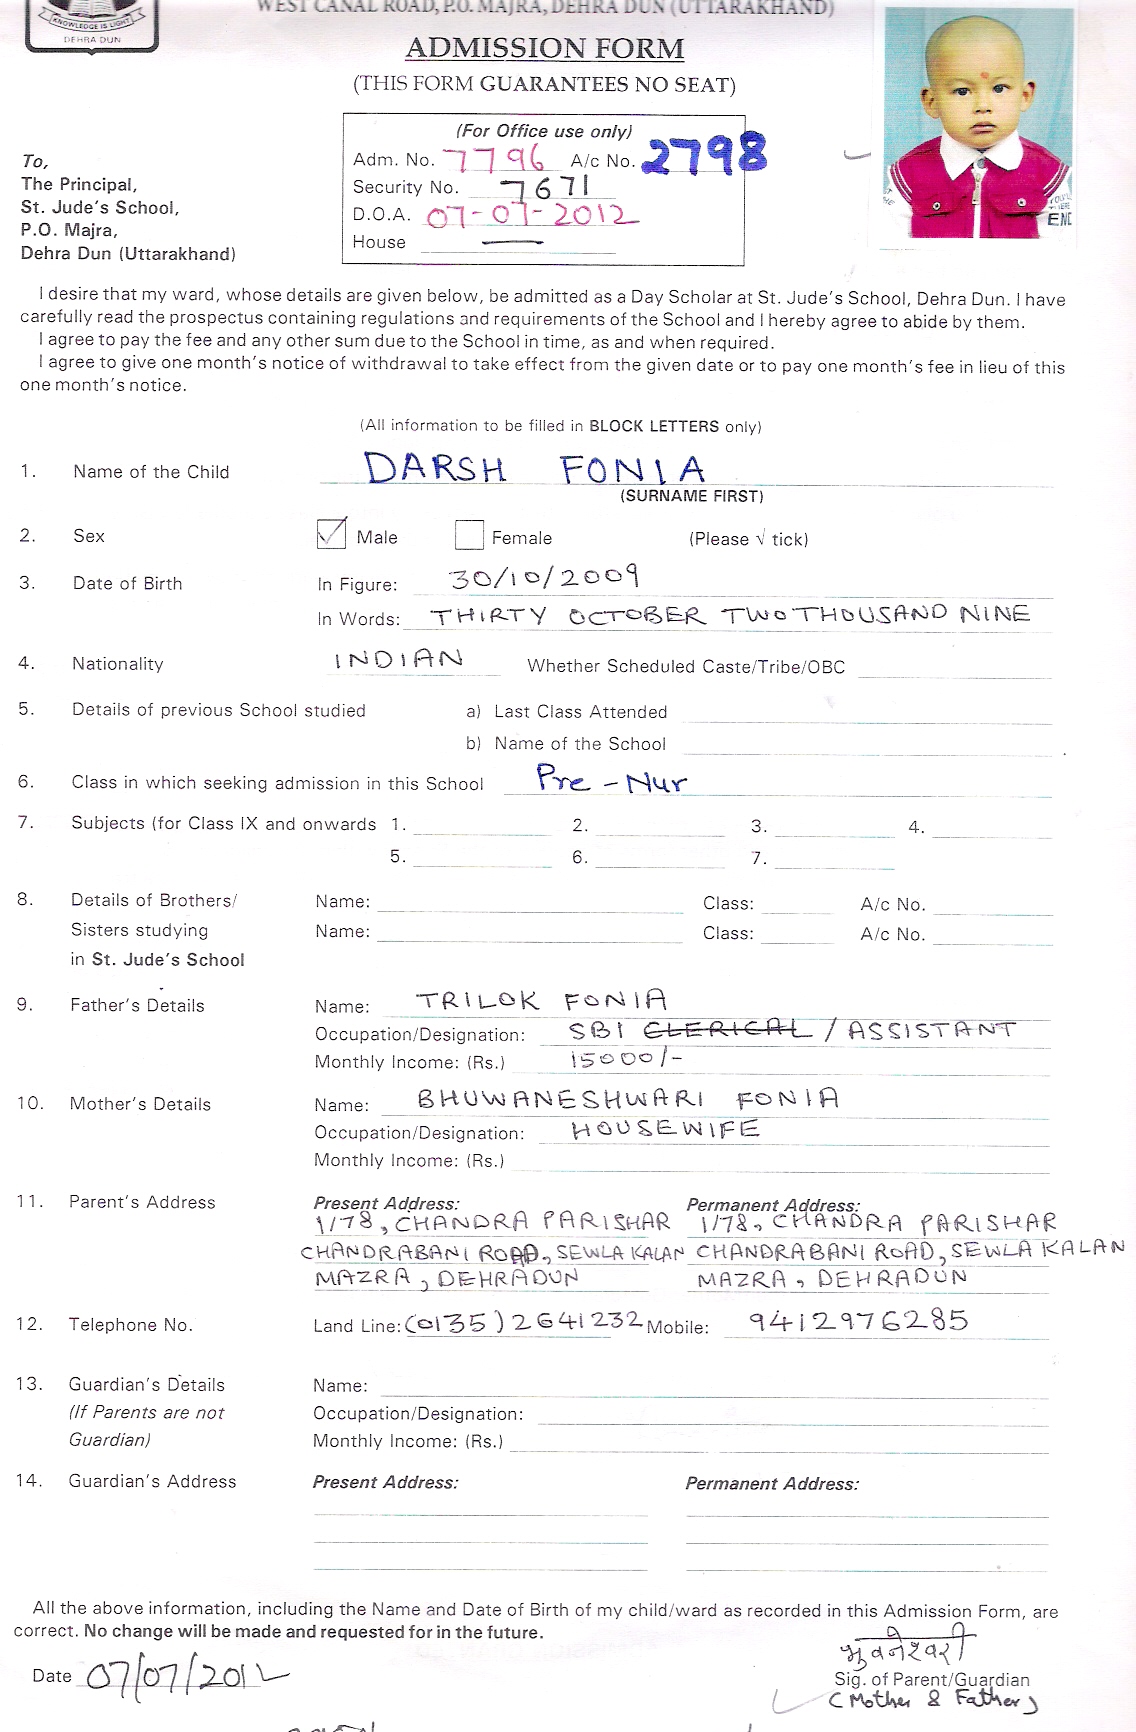 KNOWLEDGE IS LIGHT
DEHRA DUN
WEST CANAL ROAD, P.O. MAJRA, DEHRA DUN (UTTARAKHAND)
ADMISSION FORM
(THIS FORM GUARANTEES NO SEAT)
(For Office use only)
Adm. No. 7796 A/c No. 2798
Security No. 7671
D.O.A. 07-07-2012
House —
To,
The Principal,
St. Jude's School,
P.O. Majra,
Dehra Dun (Uttarakhand)
END
I desire that my ward, whose details are given below, be admitted as a Day Scholar at St. Jude's School, Dehra Dun. I have
carefully read the prospectus containing regulations and requirements of the School and I hereby agree to abide by them.
I agree to pay the fee and any other sum due to the School in time, as and when required.
I agree to give one month's notice of withdrawal to take effect from the given date or to pay one month's fee in lieu of this
one month's notice.
(All information to be filled in BLOCK LETTERS only)
1. Name of the Child DARSH FONIA
(SURNAME FIRST)
2. Sex Male Female (Please √ tick)
3. Date of Birth In Figure: 30/10/2009
In Words: THIRTY OCTOBER TWO THOUSAND NINE
4. Nationality INDIAN Whether Scheduled Caste/Tribe/OBC
5. Details of previous School studied a) Last Class Attended
b) Name of the School
6. Class in which seeking admission in this School Pre-Nur
7. Subjects (for Class IX and onwards 1. 2. 3. 4.
5. 6. 7.
8. Details of Brothers/ Name: Class: A/c No.
Sisters studying Name: Class: A/c No.
in St. Jude's School
9. Father's Details Name: TRILOK FONIA
Occupation/Designation: SBI CLERICAL / ASSISTANT
Monthly Income: (Rs.) 15000/-
10. Mother's Details Name: BHUWANESHWARI FONIA
Occupation/Designation: HOUSEWIFE
Monthly Income: (Rs.)
11. Parent's Address Present Address: Permanent Address:
1/78, CHANDRA PARISHAR 1/78, CHANDRA PARISHAR
CHANDRABANI ROAD, SEWLA KALAN CHANDRABANI ROAD, SEWLA KALAN
MAZRA, DEHRADUN MAZRA, DEHRADUN
12. Telephone No. Land Line: (0135) 2641232 Mobile: 9412976285
13. Guardian's Details Name:
(If Parents are not Occupation/Designation:
Guardian) Monthly Income: (Rs.)
14. Guardian's Address Present Address: Permanent Address:
All the above information, including the Name and Date of Birth of my child/ward as recorded in this Admission Form, are
correct. No change will be made and requested for in the future.
भुवनेश्वरी
Date 07/07/2012 Sig. of Parent/Guardian
(Mother & Father)